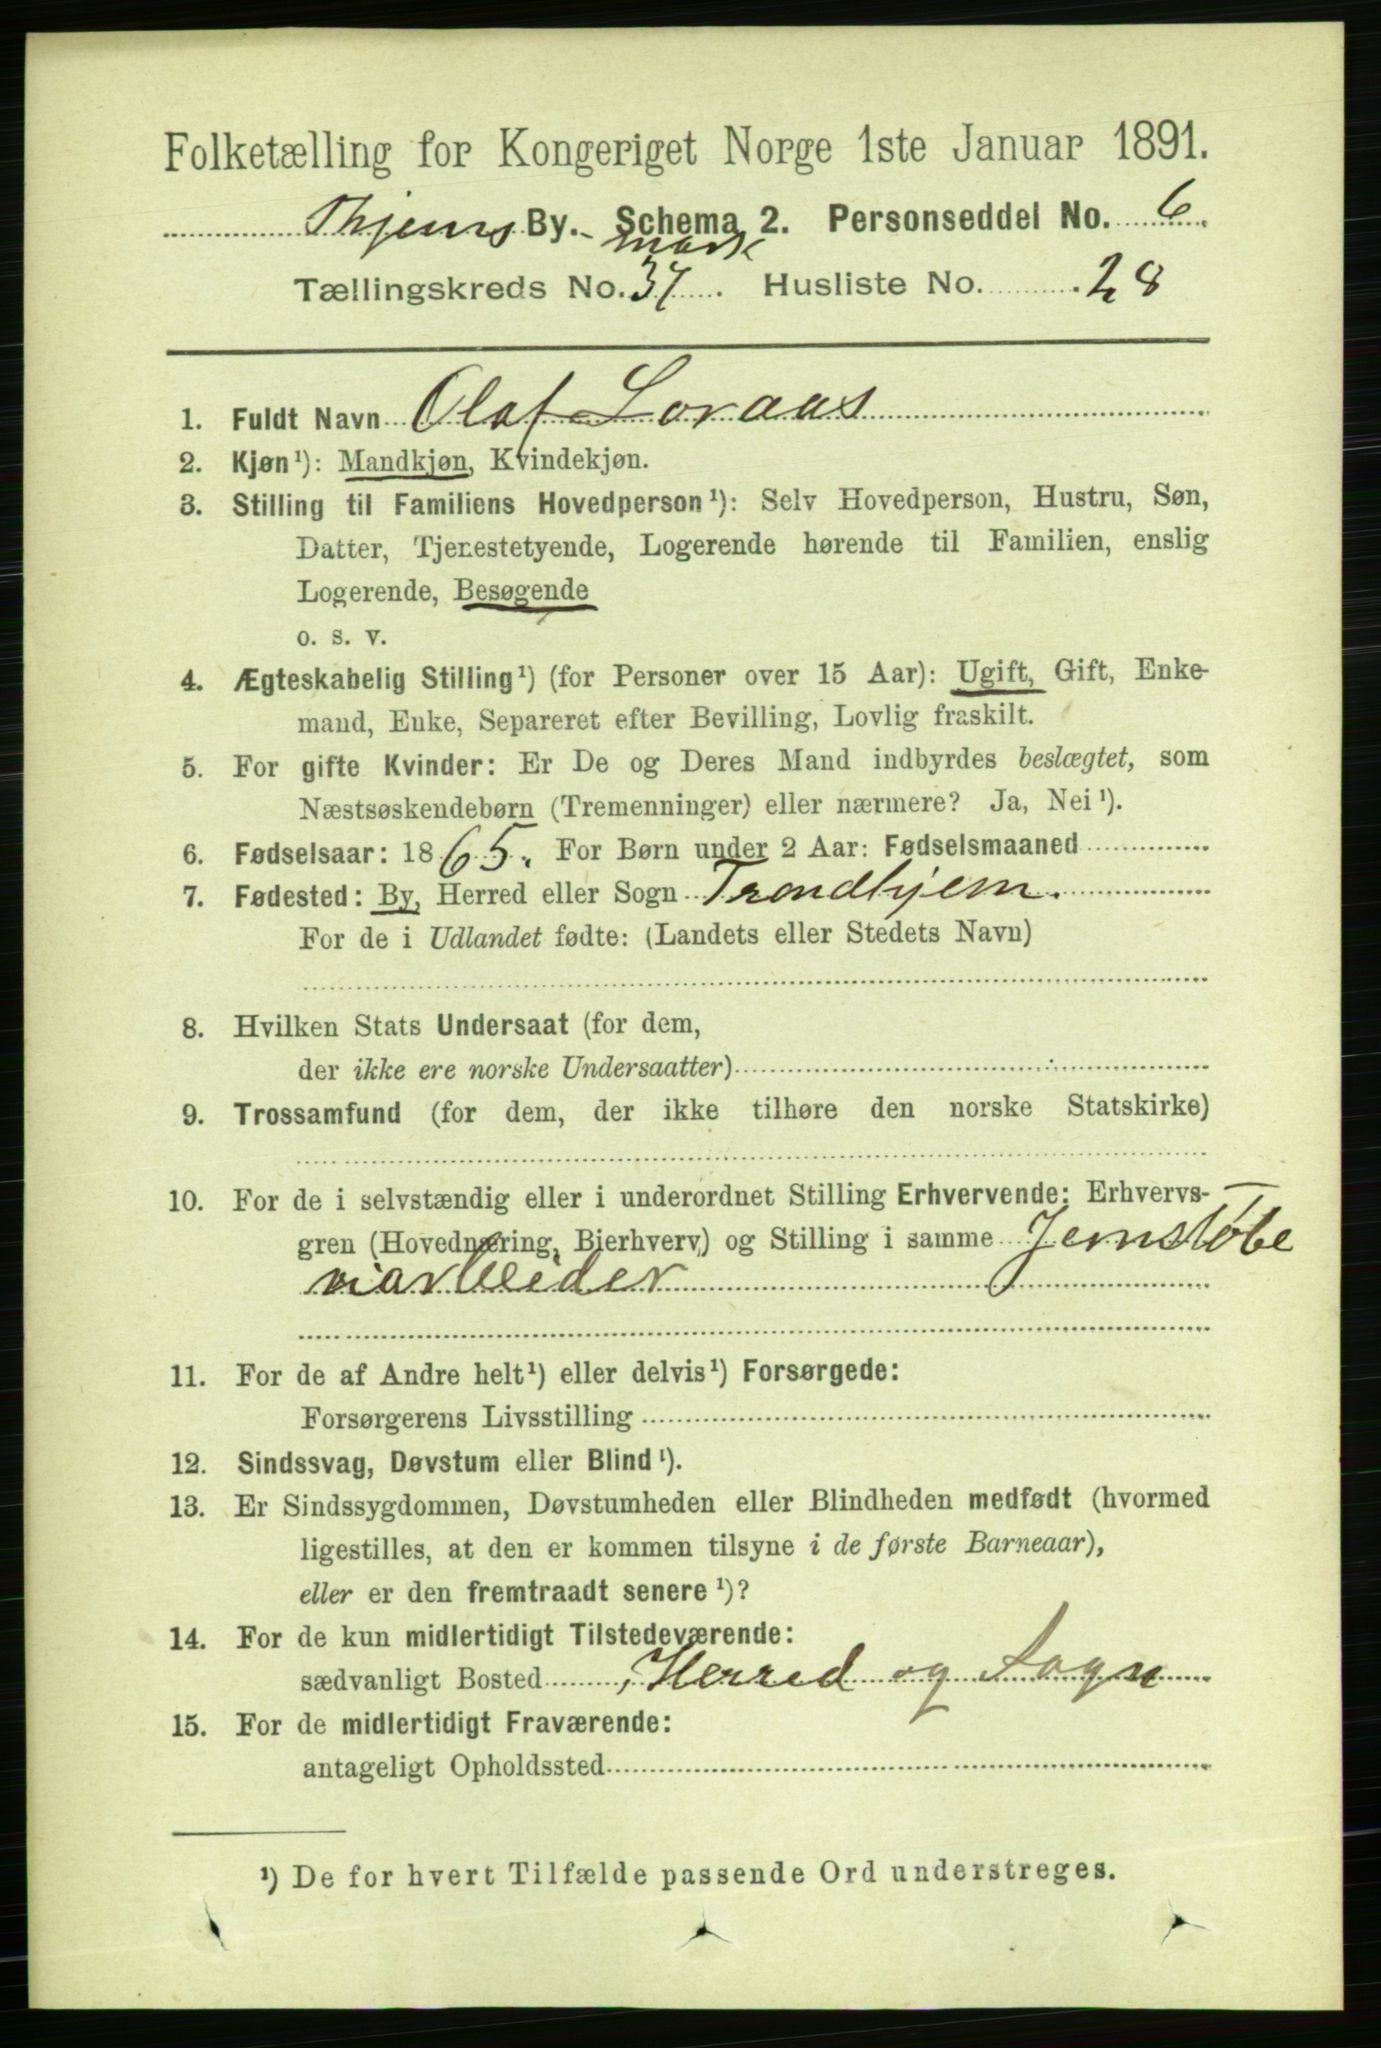 Folketælling for Kongeriget Norge 1ste Januar 1891.
Thjems By. Schema 2. Personseddel No. 6.
mark
Tællingskreds No. 37. Husliste No. 28
1. Fuldt Navn Olaf Loraas
2. Kjøn¹): Mandkjøn, Kvindekjøn.
3. Stilling til Familiens Hovedperson¹): Selv Hovedperson, Hustru, Søn,
Datter, Tjenestetyende, Logerende hørende til Familien, enslig
Logerende, Besøgende
o. s. v.
4. Ægteskabelig Stilling¹) (for Personer over 15 Aar): Ugift, Gift, Enke-
mand, Enke, Separeret efter Bevilling, Lovlig fraskilt.
5. For gifte Kvinder: Er De og Deres Mand indbyrdes beslægtet, som
Næstsøskendebørn (Tremenninger) eller nærmere? Ja, Nei¹).
6. Fødselsaar: 1865. For Børn under 2 Aar: Fødselsmaaned
7. Fødested: By, Herred eller Sogn Trondhjem.
For de i Udlandet fødte: (Landets eller Stedets Navn)
8. Hvilken Stats Undersaat (for dem,
der ikke ere norske Undersaatter)
9. Trossamfund (for dem, der ikke tilhøre den norske Statskirke)
10. For de i selvstændig eller i underordnet Stilling Erhvervende: Erhvervs-
gren (Hovednæring, Bierhverv) og Stilling i samme Jernstøbe
riarbeider
11. For de af Andre helt¹) eller delvis¹) Forsørgede:
Forsørgerens Livsstilling
12. Sindssvag, Døvstum eller Blind¹).
13. Er Sindssygdommen, Døvstumheden eller Blindheden medfødt (hvormed
ligestilles, at den er kommen tilsyne i de første Barneaar),
eller er den fremtraadt senere¹)?
14. For de kun midlertidigt Tilstedeværende:
sædvanligt Bosted , Herred og Sogn
15. For de midlertidigt Fraværende:
antageligt Opholdssted
¹) De for hvert Tilfælde passende Ord understreges.